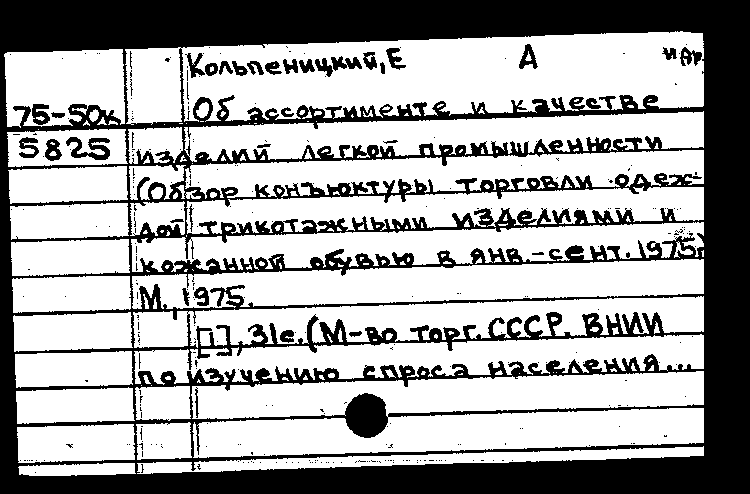 Кольпеницкий, Е А и др.
75-50к Об ассортименте и качестве
5825 изделий легкой промышленности
(Обзор конъюктуры торговли одеж-
дой, трикотажными изделиями и
кожанной обувью в янв.-сент. 1975)
М., 1975.
[1], 31с. (М-во торг. СССР. ВНИИ
по изучению спроса населения...